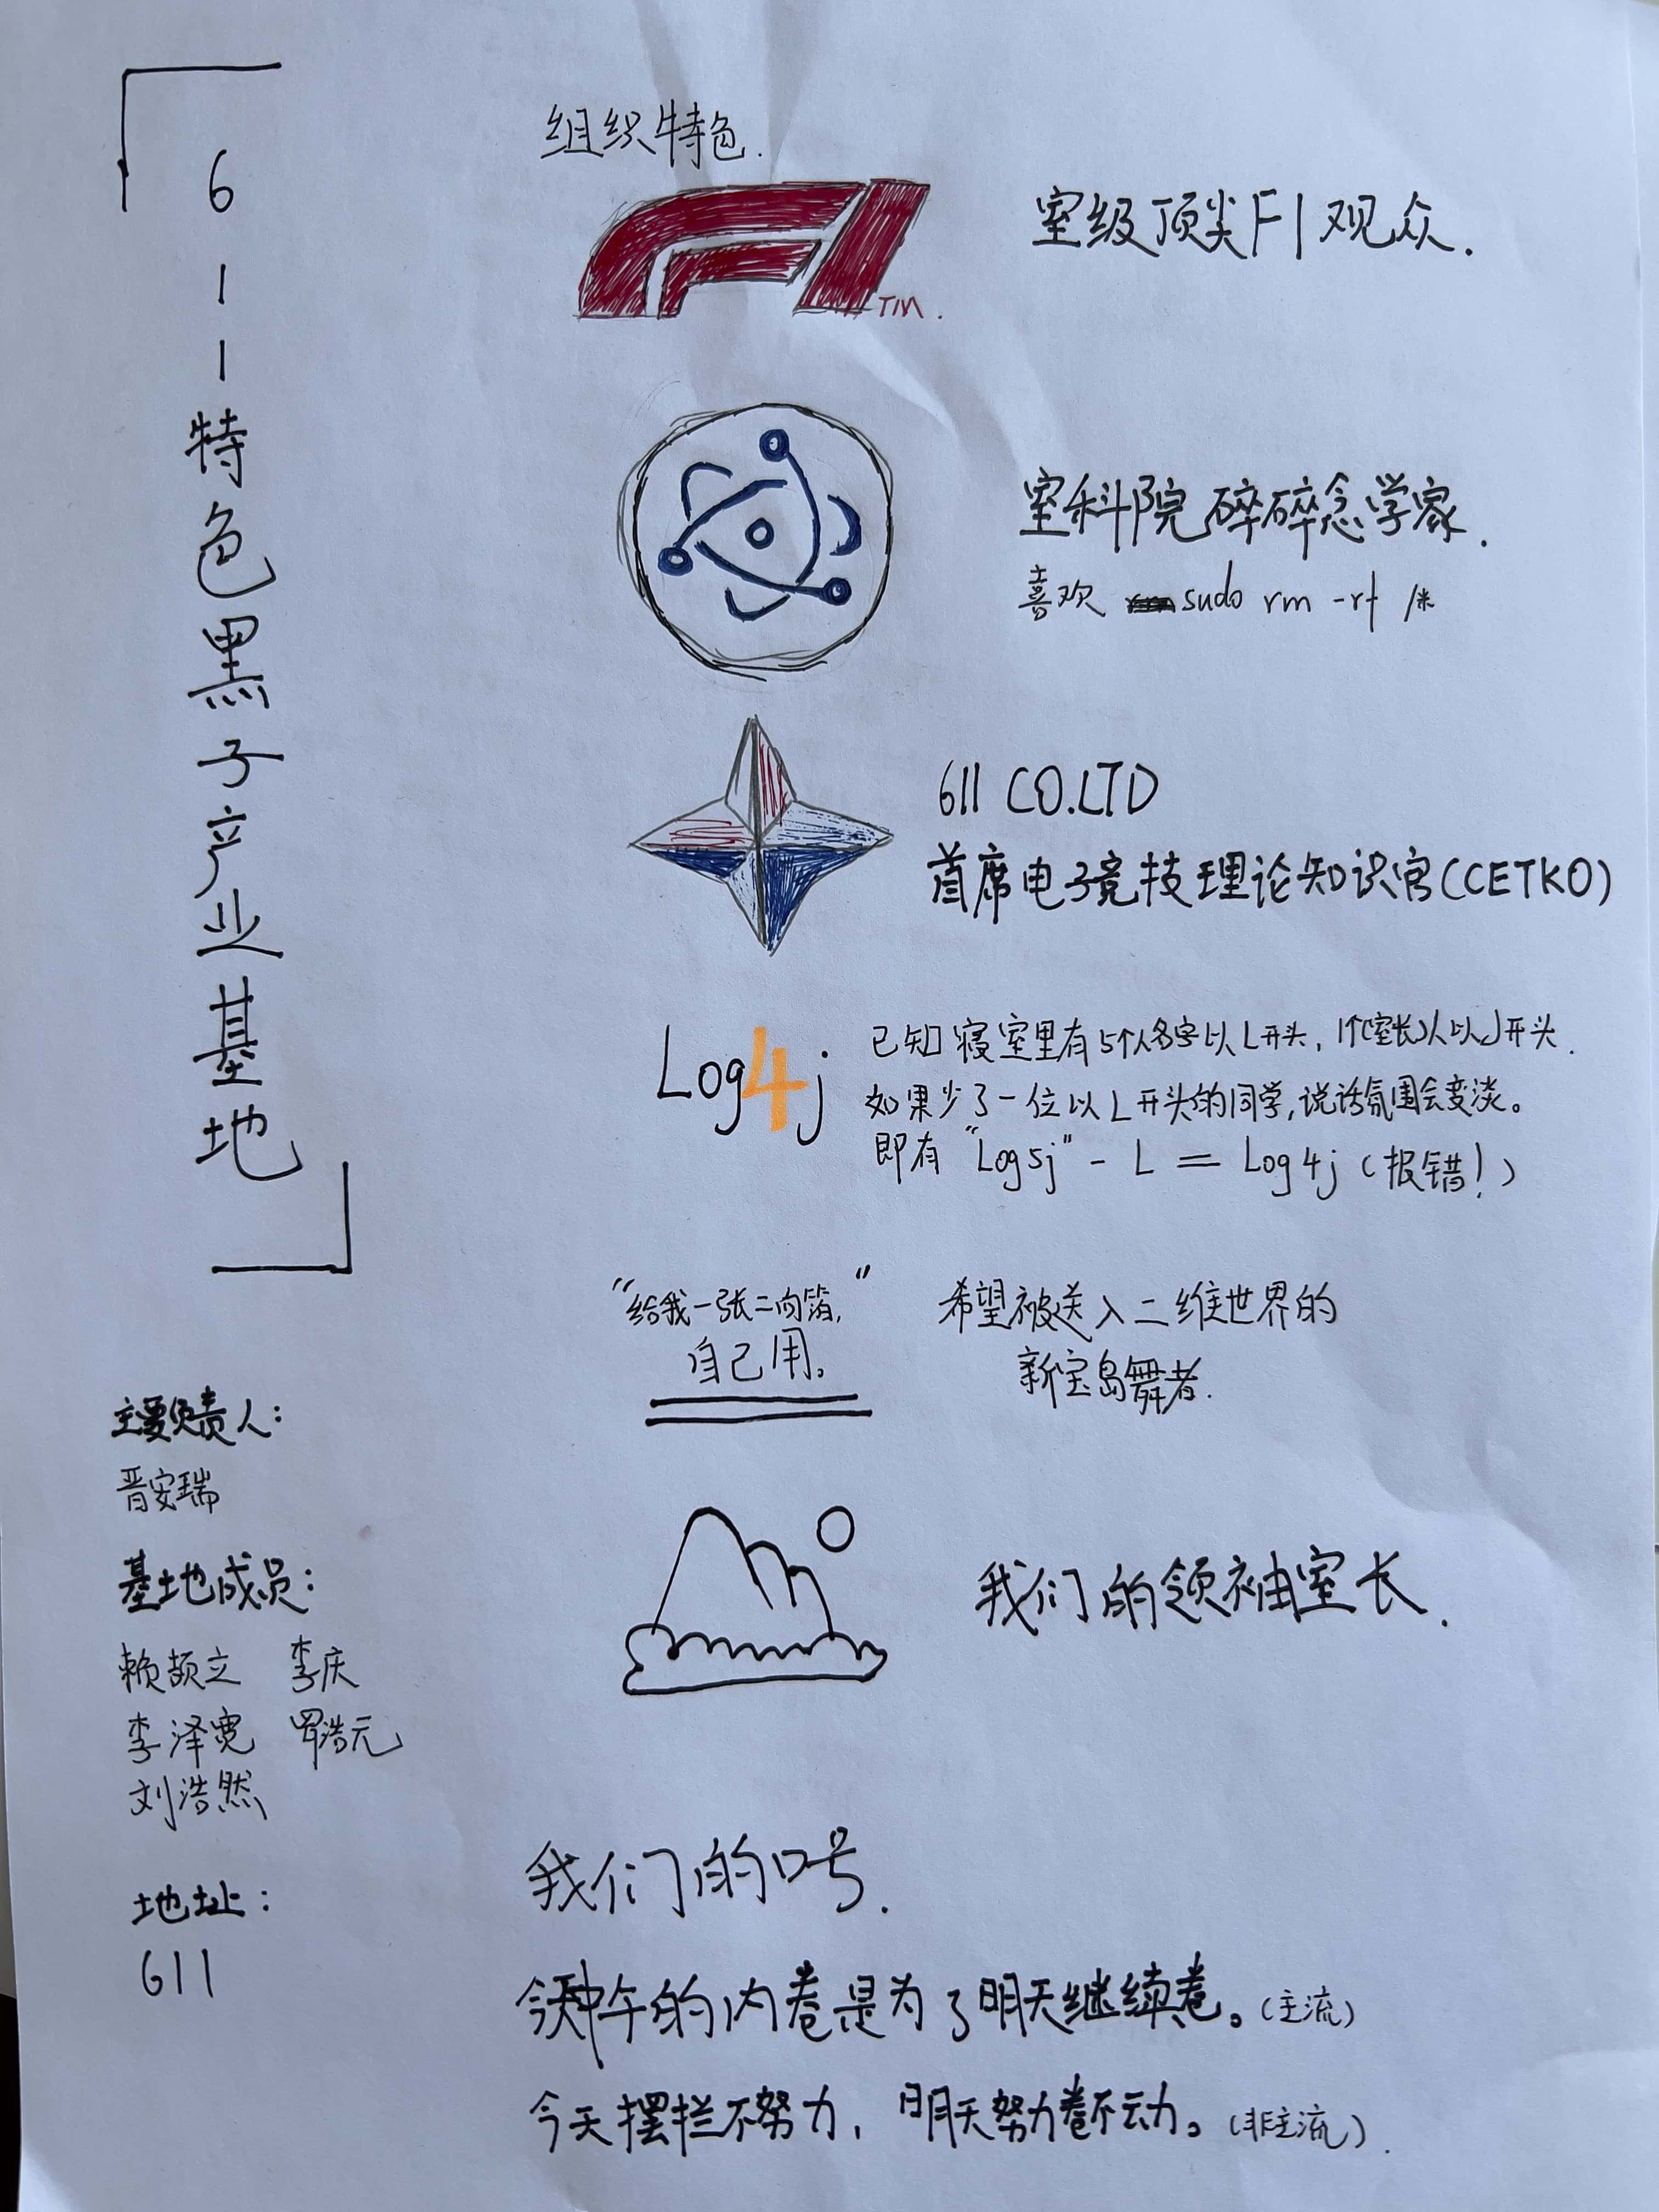 611特色黑子产业基地
组织特色.
F1 TM.
室级顶尖F1观众.
室科院碎碎念学家.
喜欢 sudo rm -rf /*
611 CO.LTD
首席电子竞技理论知识官(CETKO)
Log4j
已知寝室里有5个人名字以L开头,1个(室长)人以J开头.
如果少了一位以L开头的同学,说话氛围会变淡。
即有"Log5j" - L = Log4j(报错!)
"给我一张二向箔,"
自己用。
希望被送入二维世界的
新宝岛舞者.
我们的领袖室长.
主要负责人:
晋安瑞
基地成员:
赖颉立 李庆
李泽宽 罗浩元
刘浩然
地址:
611
我们的口号.
今天中午的内卷是为了明天继续卷。(主流)
今天摆拦不努力,明天努力卷不动。(非主流).